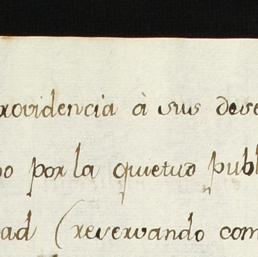 rovidencia à sus dese
o por la quietud publ
ad (reservando com